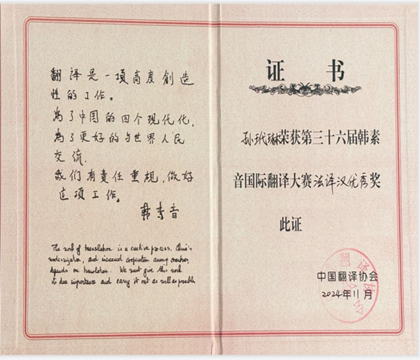 翻译是一项高度创造
性的工作。
为了中国的四个现代化,
为了更好的与世界人民
交流,
我们有责任重视,做好
这项工作。
韩素音
The work of translation is a creative process. China's
modernization, and increased cooperation among
depends on translation. We must give this work
its due importance and carry it out as well as possible
证书
孙玳琳荣获第三十六届韩素
音国际翻译大赛法译汉优秀奖
此证
中国翻译协会
2024年11月